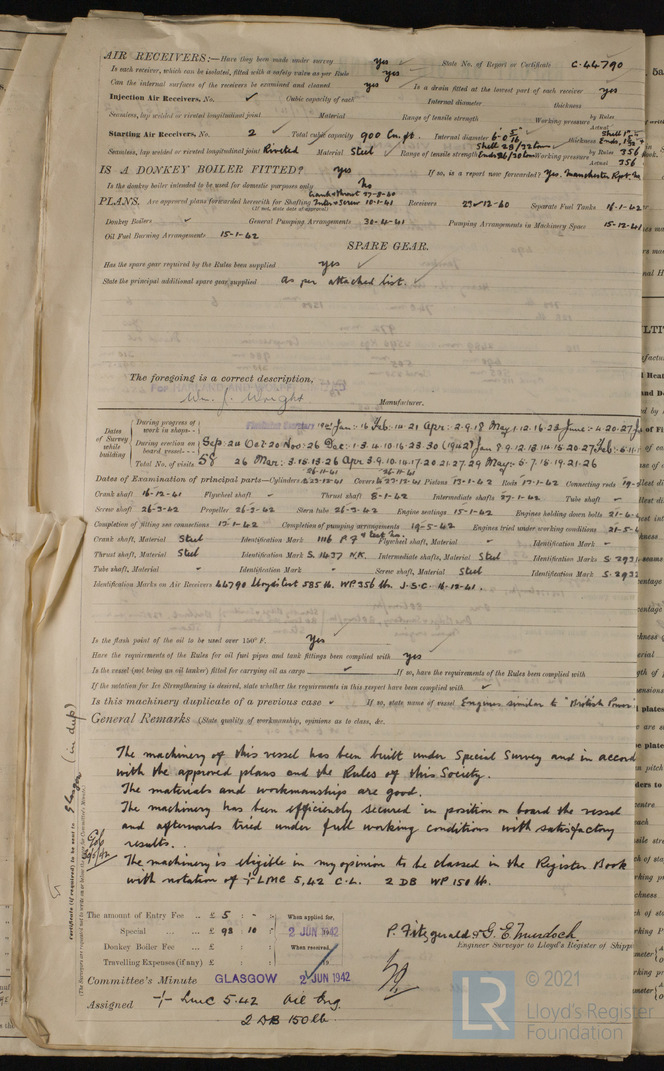 AIR RECEIVERS:—Have they been made under survey yes State No. of Report or Certificate C.44790
Is each receiver, which can be isolated, fitted with a safety valve as per Rule yes
Can the internal surfaces of the receivers be examined and cleaned yes Is a drain fitted at the lowest part of each receiver yes
Injection Air Receivers, No. Cubic capacity of each Internal diameter thickness
Seamless, lap welded or riveted longitudinal joint Material Range of tensile strength Working pressure by Rules Actual
Starting Air Receivers, No. 2 Total cubic capacity 900 Cu. ft. Internal diameter thickness
Seamless, lap welded or riveted longitudinal joint Riveted Material Steel Range of tensile strength Shell 28/32 tons Ends 26/30 tons Working pressure by Rules 356 Actual 356
IS A DONKEY BOILER FITTED? yes If so, is a report now forwarded? Yes. Manchester Rpt. No
Is the donkey boiler intended to be used for domestic purposes only no
PLANS. Are approved plans forwarded herewith for Shafting Crank & Thrust 27-8-40 Inter & Screw 10-1-41 Receivers 23-12-40 Separate Fuel Tanks 16-1-42
(If not, state date of approval)
Donkey Boilers General Pumping Arrangements 30-4-41 Pumping Arrangements in Machinery Space 15-12-41
Oil Fuel Burning Arrangements 15-1-42
SPARE GEAR.
Has the spare gear required by the Rules been supplied yes
State the principal additional spare gear supplied as per attached list.
The foregoing is a correct description,
For HARLAND AND WOLFF
Wm. J. Wright Manufacturer.
Dates of Survey while building
During progress of work in shops-- 1941 Jan:- 16 Feb:- 14-21 Apr:- 2-9-18 May 1-12-16-23 June:- 4-20-27
During erection on board vessel--- Sep: 24 Oct 20 Nov: 26 Dec: 1-3-4-10-16-23-30 (1942) Jan 8-9-12-13-14-15-20-27 Feb:- 5-11
Total No. of visits 58 26 Mar: 3-15-13-26 Apr 3-9-10-14-17-20-21-27-29 May:- 5-7-15-19-21-26
Dates of Examination of principal parts—Cylinders 26-11-41 & 23-12-41 Covers 26-11-41 & 23-12-41 Pistons 13-1-42 Rods 13-1-42 Connecting rods
Crank shaft 16-12-41 Flywheel shaft Thrust shaft 8-1-42 Intermediate shafts 27-1-42 Tube shaft
Screw shaft 26-3-42 Propeller 26-3-42 Stern tube 26-3-42 Engine seatings 15-1-42 Engines holding down bolts 21-4-
Completion of fitting sea connections 12-1-42 Completion of pumping arrangements 19-5-42 Engines tried under working conditions 21-5-4
Crank shaft, Material Steel Identification Mark 1116 P.F. Flywheel shaft, Material Identification Mark
Thrust shaft, Material Steel Identification Mark S. 1437 N.K. Intermediate shafts, Material Steel Identification Marks S. 2931
Tube shaft, Material Identification Mark Screw shaft, Material Steel Identification Mark S. 2932
Identification Marks on Air Receivers 44790 Lloyds test 585 lb. WP 356 lb. J.S.C. 16-12-41.
Is the flash point of the oil to be used over 150° F. Yes
Have the requirements of the Rules for oil fuel pipes and tank fittings been complied with yes
Is the vessel (not being an oil tanker) fitted for carrying oil as cargo If so, have the requirements of the Rules been complied with
If the notation for Ice Strengthening is desired, state whether the requirements in this respect have been complied with
Is this machinery duplicate of a previous case If so, state name of vessel Engines similar to "British
General Remarks (State quality of workmanship, opinions as to class, &c.
The machinery of this vessel has been built under Special Survey and in accord
with the approved plans and the Rules of this Society.
The materials and workmanship are good.
The machinery has been efficiently secured in position on board the vessel
and afterwards tried under full working conditions with satisfactory
results.
The machinery is eligible in my opinion to be classed in the Register Book
with notation of + LMC 5,42 C.L. 2 DB WP 150 lb.
Certificate (if required) to be sent to Glasgow (in dup)
(The Surveyors are requested not to write on or below the space for Committee's Minute.)
The amount of Entry Fee .. £ 5 : - : When applied for,
Special ... £ 98 : 10 : 2 JUN 1942
Donkey Boiler Fee £ : When received,
Travelling Expenses (if any) £ : 19
P. Fitzgerald & G. E. Murdoch
Engineer Surveyor to Lloyd's Register of Shipp
Committee's Minute GLASGOW 2 JUN 1942
Assigned + LMC 5.42 Oil Eng.
2 DB 150 lb.
© 2021
LR Lloyd's Register
Foundation